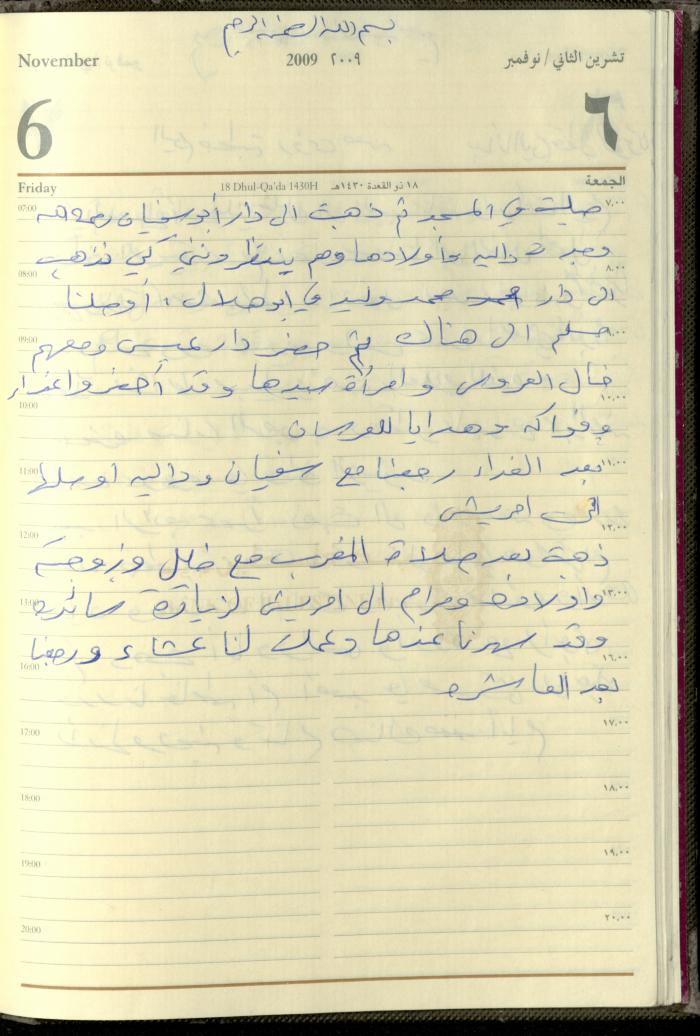 بسم الله الرحمن الرحيم
November 2009 ٢٠٠٩ تشرين الثاني / نوفمبر
6 ٦
Friday 18 Dhul-Qa'da 1430H ١٨ ذو القعدة ١٤٣٠هـ الجمعة
07:00 صليت في المسجد ثم ذهبت الى دار أبو سفيان ٧،٠٠
وجدت داليه وأولادها وهم ينتظرونني كي نذهب
08:00 ٨،٠٠
الى دار محمد وليد في ابو هلال، أوصلنا
09:00 ٩،٠٠
الى هناك ثم حضر دار عميس ومعهم
خال العروس وامرأة سيدها وقد أحضروا غداء
10:00 ١٠،٠٠
وفواكه وهدايا للعرسان
11:00 بعد الغداء رجعنا مع سفيان وداليه أوصلها ١١،٠٠
الى امريش
12:00 ١٢،٠٠
ذهبت بعد صلاة المغرب مع خليل وزوجته
13:00 واولاده ومرام الى امريش لزيارة سائده ١٣،٠٠
وقد سهرنا عندها وعملت لنا عشاء ورجعنا
16:00 ١٦،٠٠
بعد العاشره
17:00 ١٧،٠٠
18:00 ١٨،٠٠
19:00 ١٩،٠٠
20:00 ٢٠،٠٠